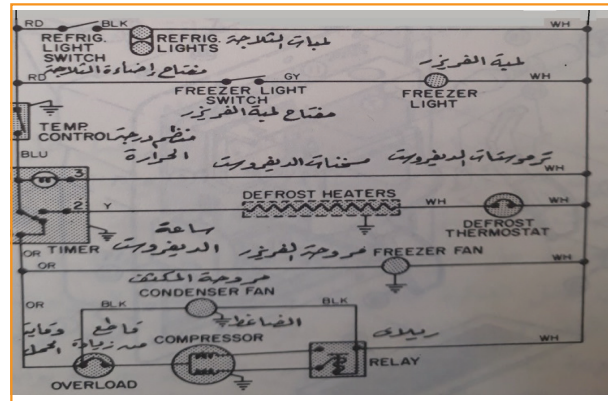 RD BLK WH
REFRIG. LIGHT SWITCH
REFRIG. LIGHTS
لمبات الثلاجة
مفتاح إضاءة الثلاجة
لمبة الفريزر
RD GY WH
FREEZER LIGHT SWITCH
FREEZER LIGHT
مفتاح لمبة الفريزر
TEMP. CONTROL
منظم درجة
الحرارة
BLU
مسخنات الديفروست
ترموستات الديفروست
3 WH
DEFROST HEATERS
2 Y WH WH
DEFROST THERMOSTAT
ساعة
الديفروست
OR TIMER
مروحة الفريزر
FREEZER FAN
OR WH
مروحة المكثف
CONDENSER FAN
OR BLK BLK
قاطع
وقاية
من زيادة
الحمل
الضاغط
COMPRESSOR
ريلاى
WH
RELAY
OVERLOAD